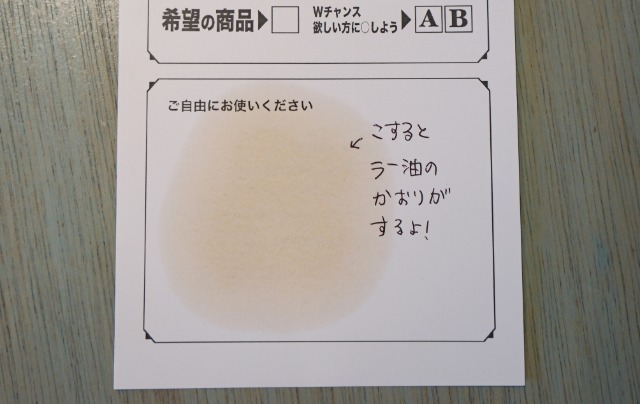 希望の商品▶□
Wチャンス
欲しい方に○しよう▶ A B
ご自由にお使いください
↙こすると
ラー油の
かおりが
するよ!